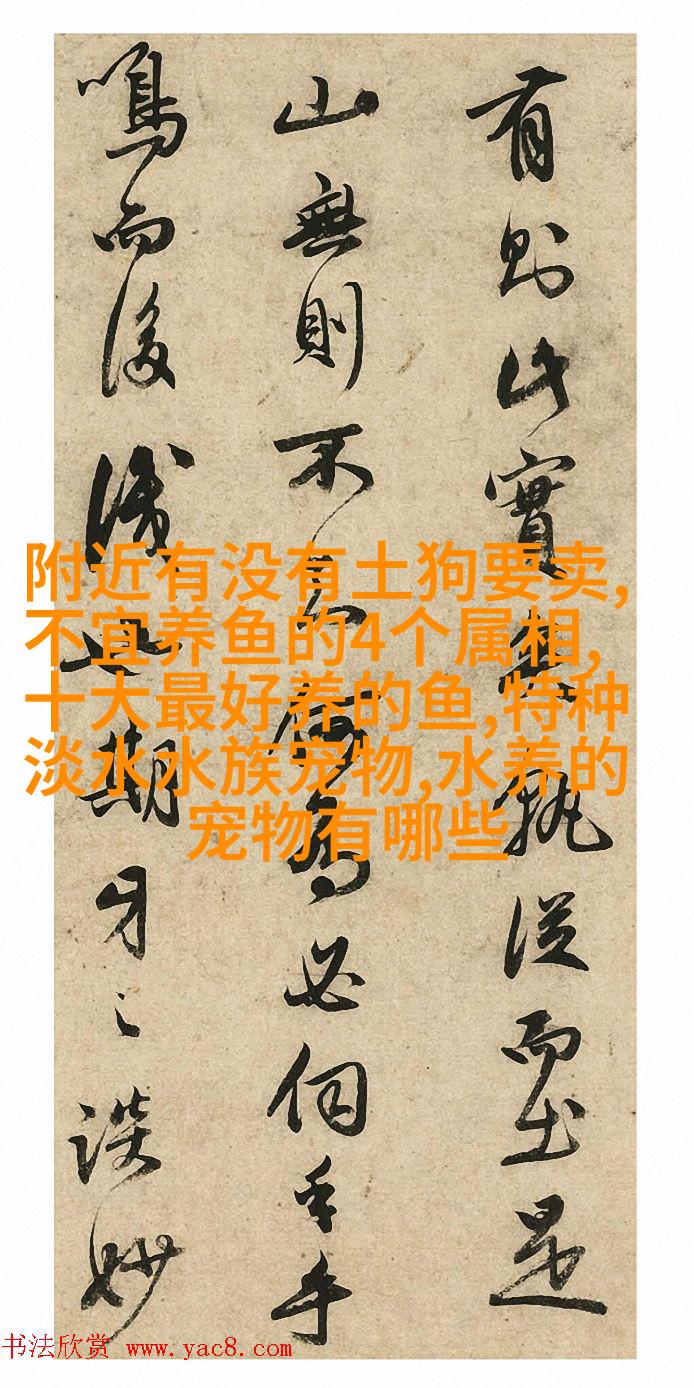 有則此實無孰從而出是
山無則不何為必伺手手
鳴而後也期牙之談妙
附近有没有土狗要卖,
不宜养鱼的4个属相,
十大最好养的鱼,特种
淡水水族宠物,水养的
宠物有哪些
书法欣赏 www.yac8.com